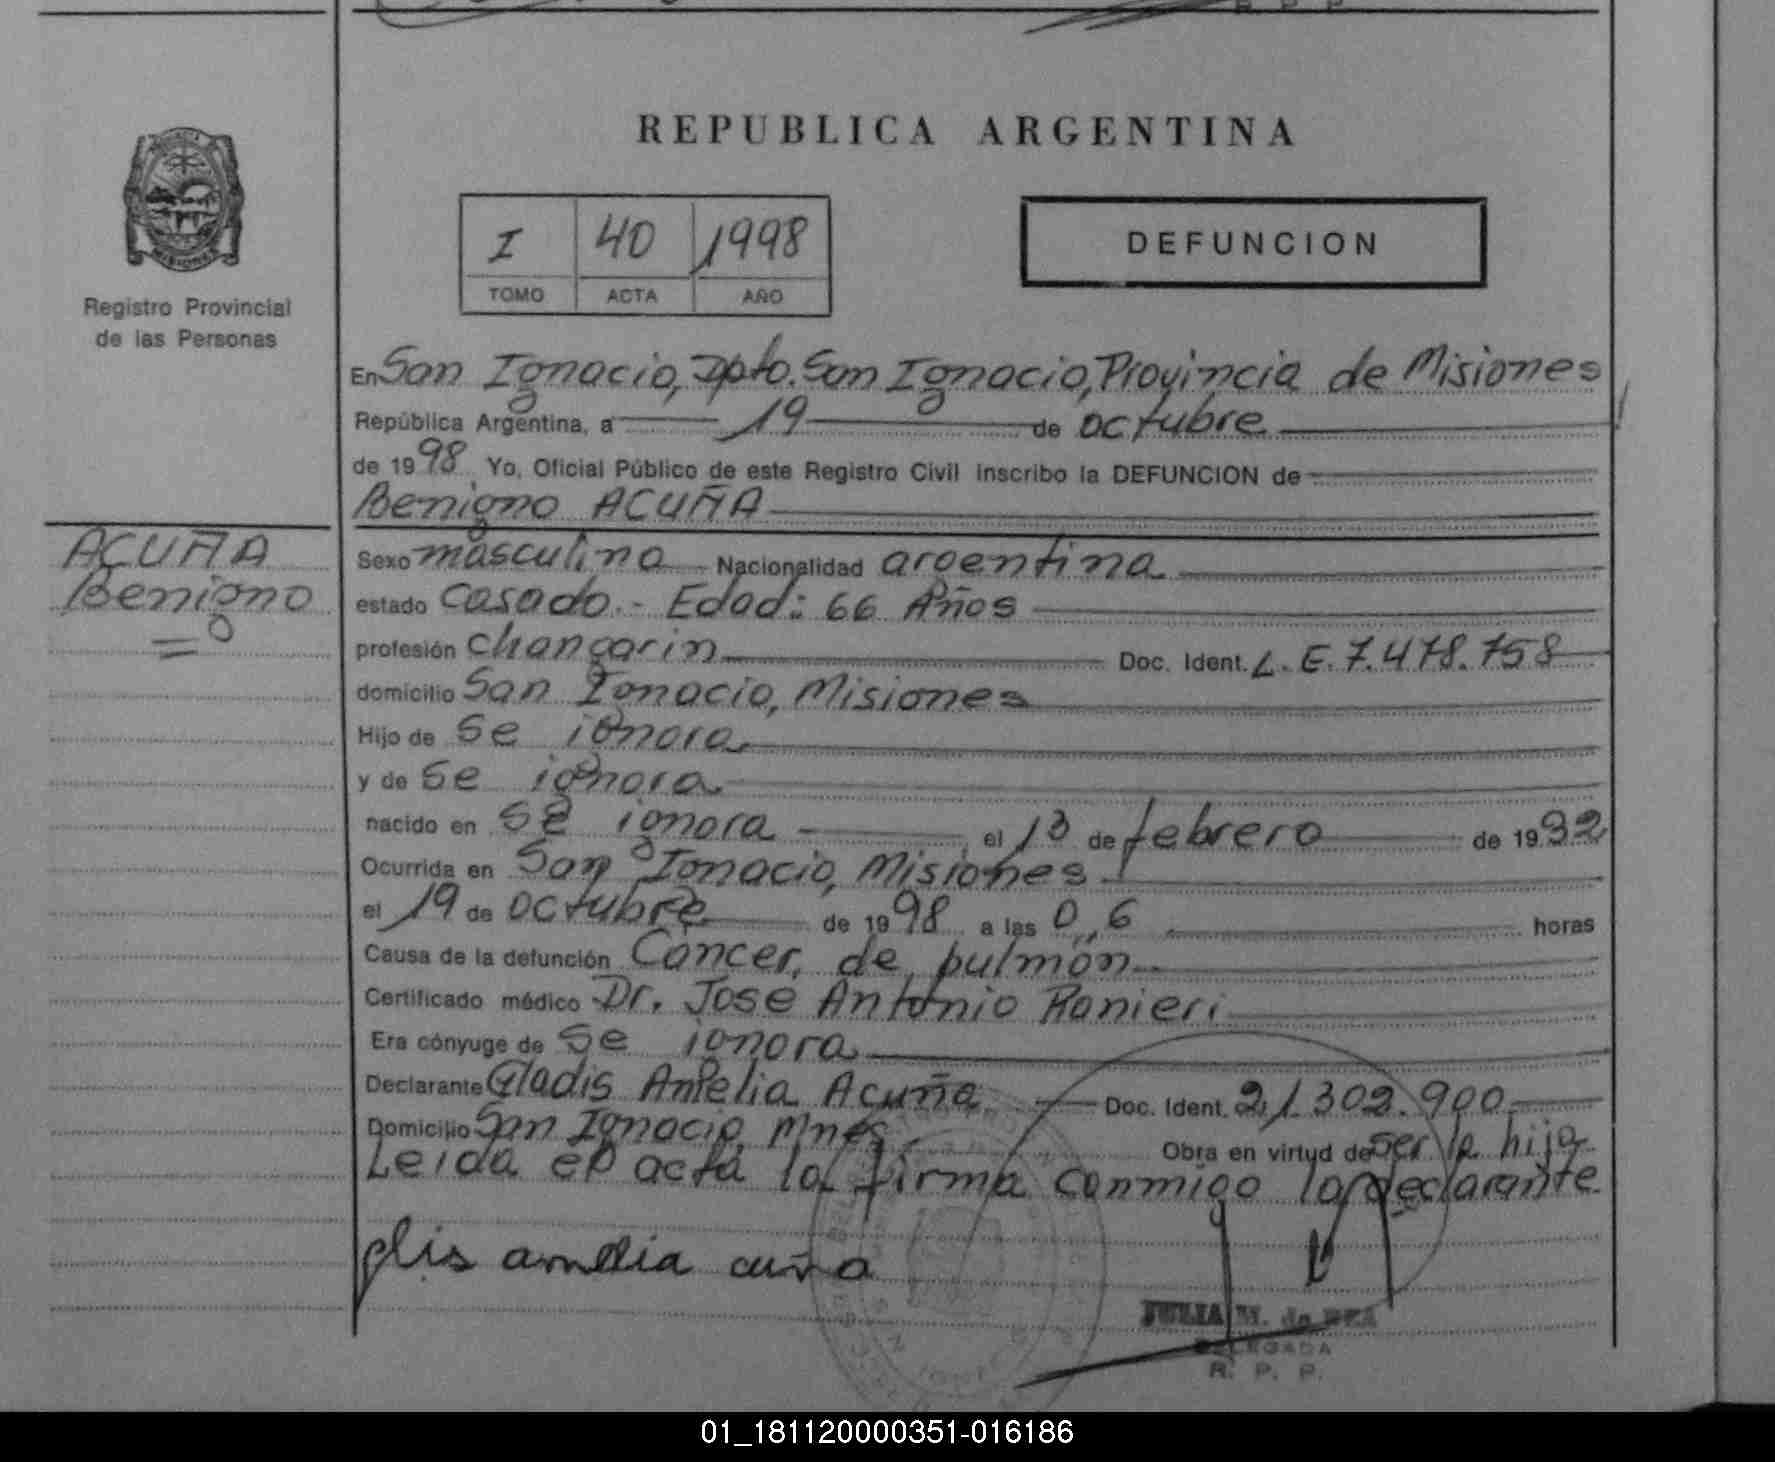 REPUBLICA ARGENTINA
I 40 1998
TOMO ACTA AÑO
DEFUNCION
Registro Provincial
de las Personas
En San Ignacio, Dpto. San Ignacio, Provincia de Misiones
República Argentina, a 19 de octubre
de 1998 Yo, Oficial Público de este Registro Civil inscribo la DEFUNCION de
Benigno ACUÑA
ACUÑA
Benigno
Sexo masculino Nacionalidad argentina
estado Casado.- Edad: 66 Años
profesión Changarin Doc. Ident. L.E. 7.478.758
domicilio San Ignacio, Misiones
Hijo de Se ignora
y de Se ignora
nacido en Se ignora el 13 de febrero de 1932
Ocurrida en San Ignacio, Misiones
el 19 de octubre de 1998 a las 0,6 horas
Causa de la defunción Cáncer, de pulmón
Certificado médico Dr. Jose Antonio Ranieri
Era cónyuge de Se ignora
Declarante Gladis Amelia Acuña Doc. Ident. 21.302.900
Domicilio San Ignacio, Mnes. Obra en virtud de ser la hija
Leida el acta la firma conmigo la declarante
glis amelia acuña
JULIA M. de
DELEGADA
R. P. P.
01_181120000351-016186